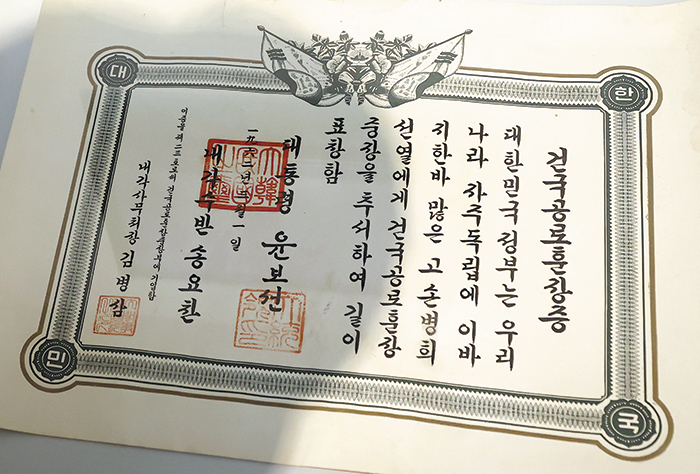 대
한
민
국
건국공로훈장증
대한민국정부는 우리
나라 자주독립에 이바
지한바 많은 고 손병희
선열에게 건국공로훈장
중장을 추서하여 길이
표창함
대통령 윤보선
一九六二년 三월 一일
내각수반 송요찬
건국공로훈장부에 기입함
내각사무처장 김병삼